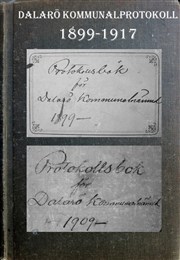 DALARÖ KOMMUNALPROTOKOLL
1899-1917
Protokollsbok
för
Dalarö Kommunalnämnd
1899—
Protokollsbok
för
Dalarö Kommunalnämnd
1909—